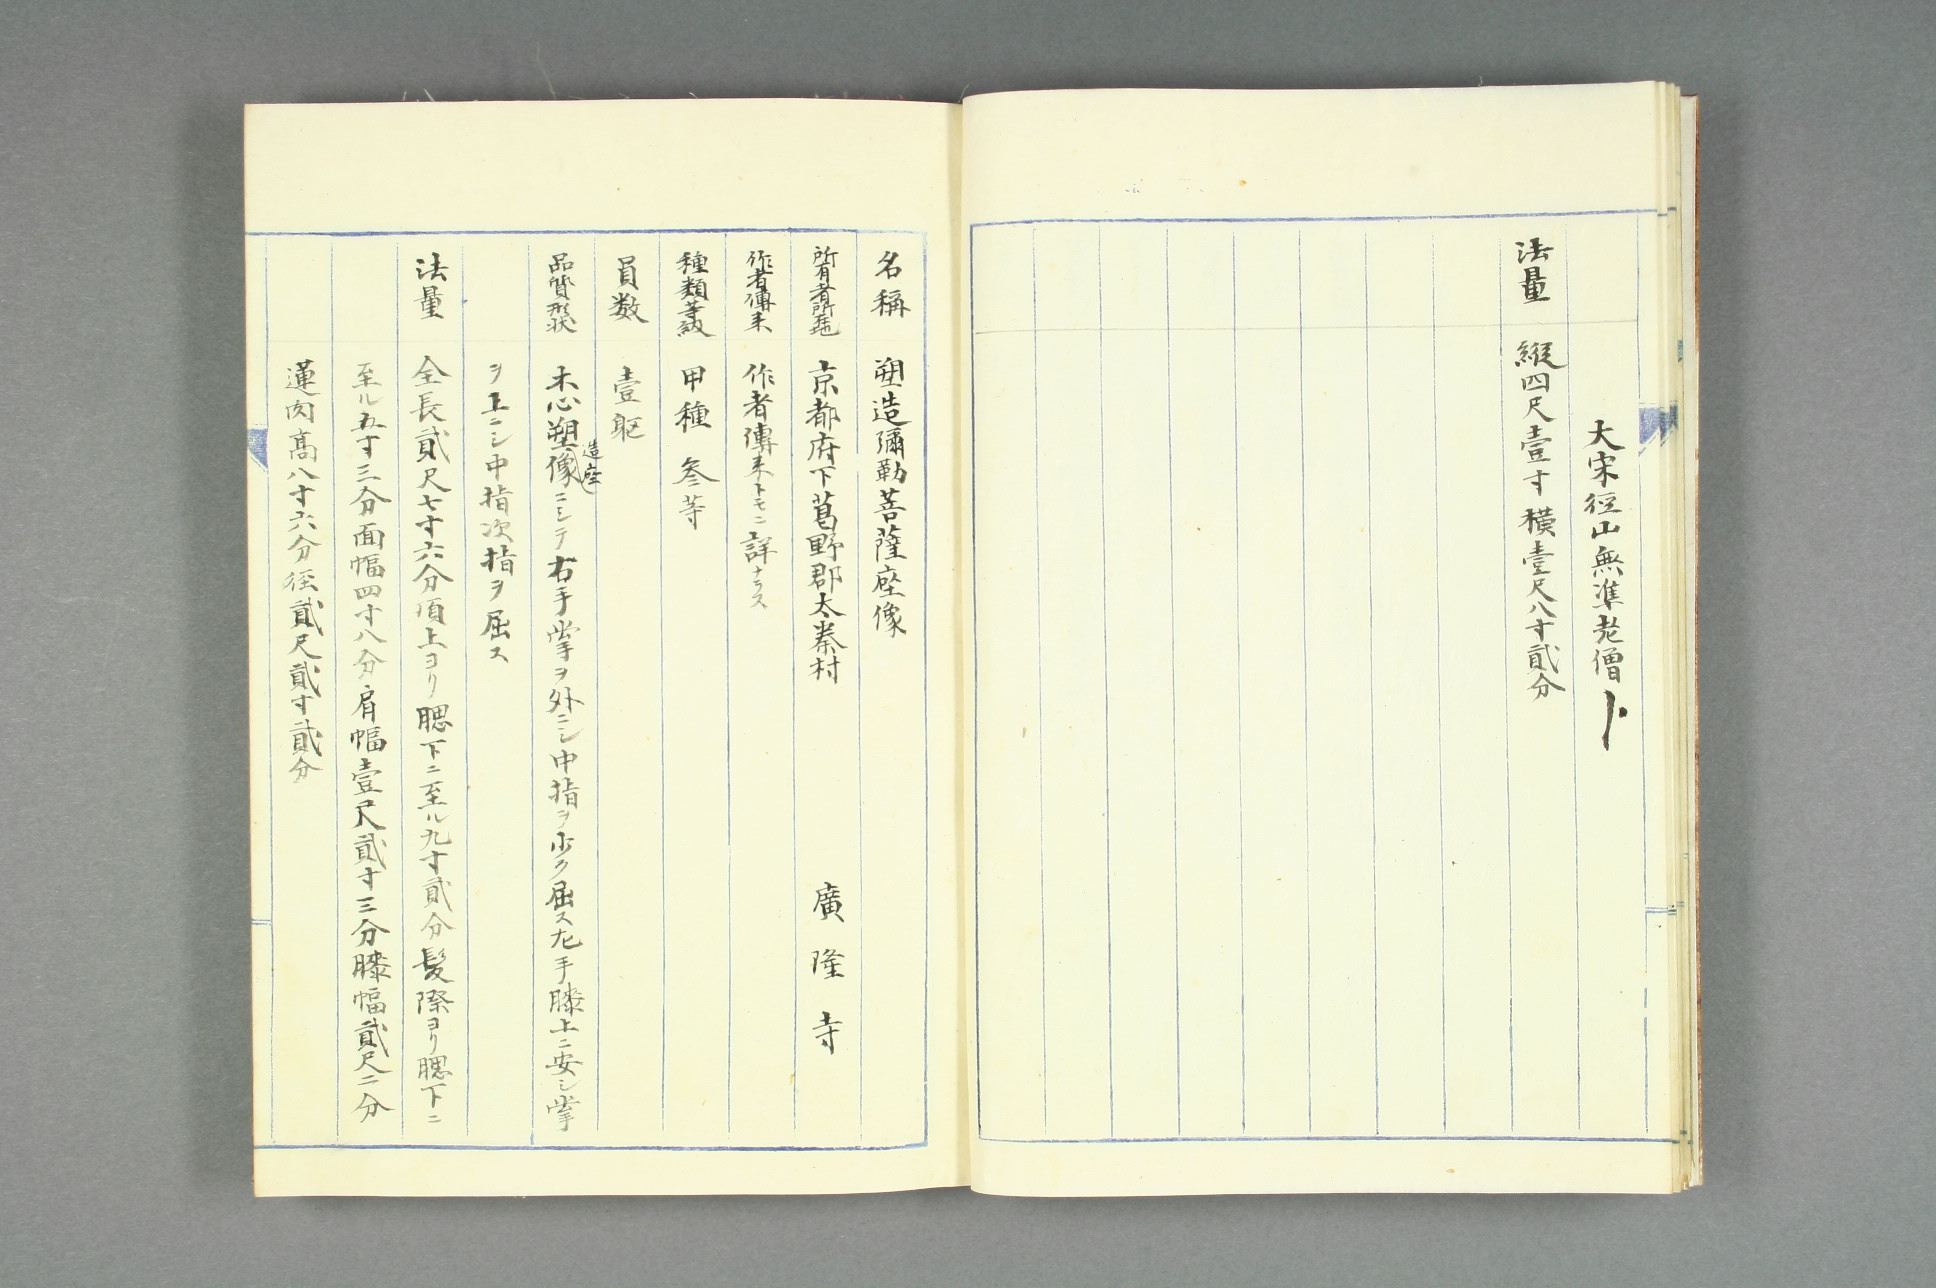 大宋徑山無準老僧ト
法量 縱四尺壹寸 橫壹尺八寸貳分
名稱 塑造彌勒菩薩座像
所有者所在地 京都府下葛野郡太秦村 廣隆寺
作者傳来 作者傳来トモニ詳ナラス
種類等級 甲種 叄等
員数 壹躯
品質形状 木心塑像造座ニシテ右手掌ヲ外ニシ中指ヲ少ク屈ス左手膝上ニ安シ掌
ヲ上ニシ中指次指ヲ屈ス
法量 全長貳尺七寸六分頂上ヨリ腮下ニ至ル九寸貳分髮際ヨリ腮下ニ
至ル五寸三分面幅四寸八分肩幅壹尺貳寸三分膝幅貳尺二分
蓮肉高八寸六分徑貳尺貳寸貳分